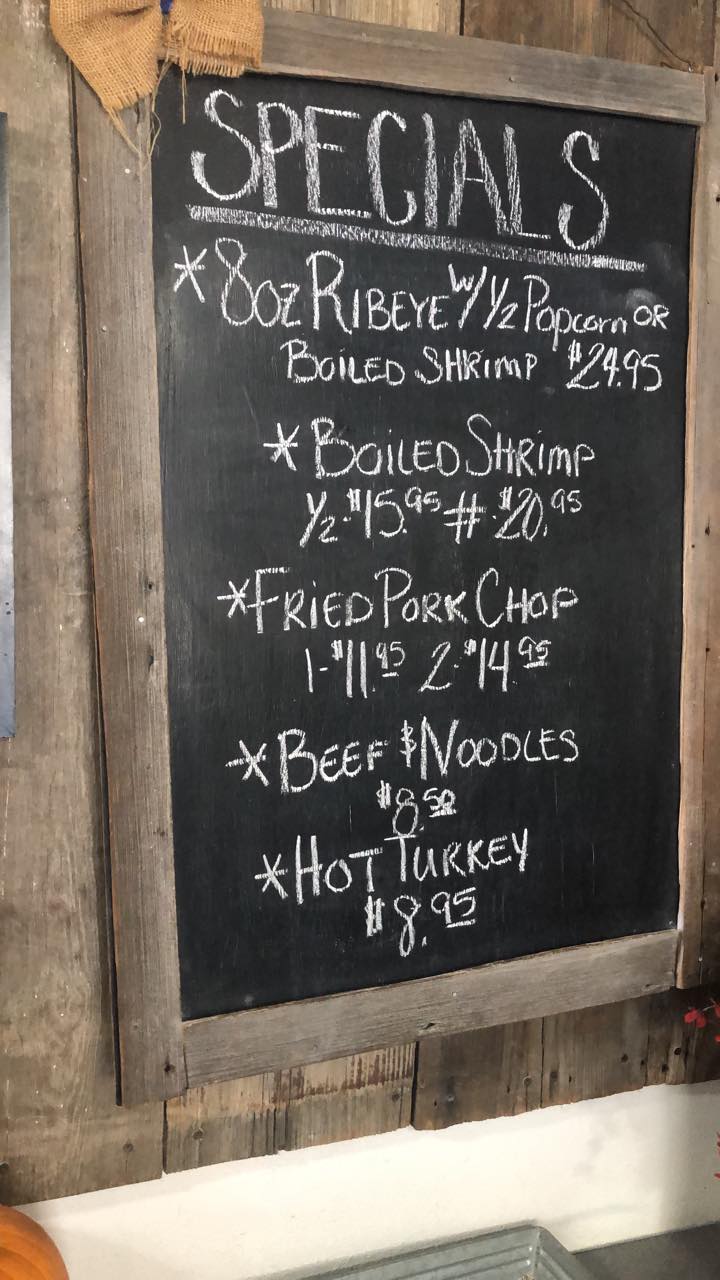 SPECIALS
*8oz RIBEYE W/ 1/2 Popcorn OR
BOILED SHRIMP $24.95
*BOILED SHRIMP
1/2-$15.95 # $20.95
*FRIED PORK CHOP
1-$11.95 2-$14.95
*BEEF & NOODLES
$8.50
*HOT TURKEY
$8.95